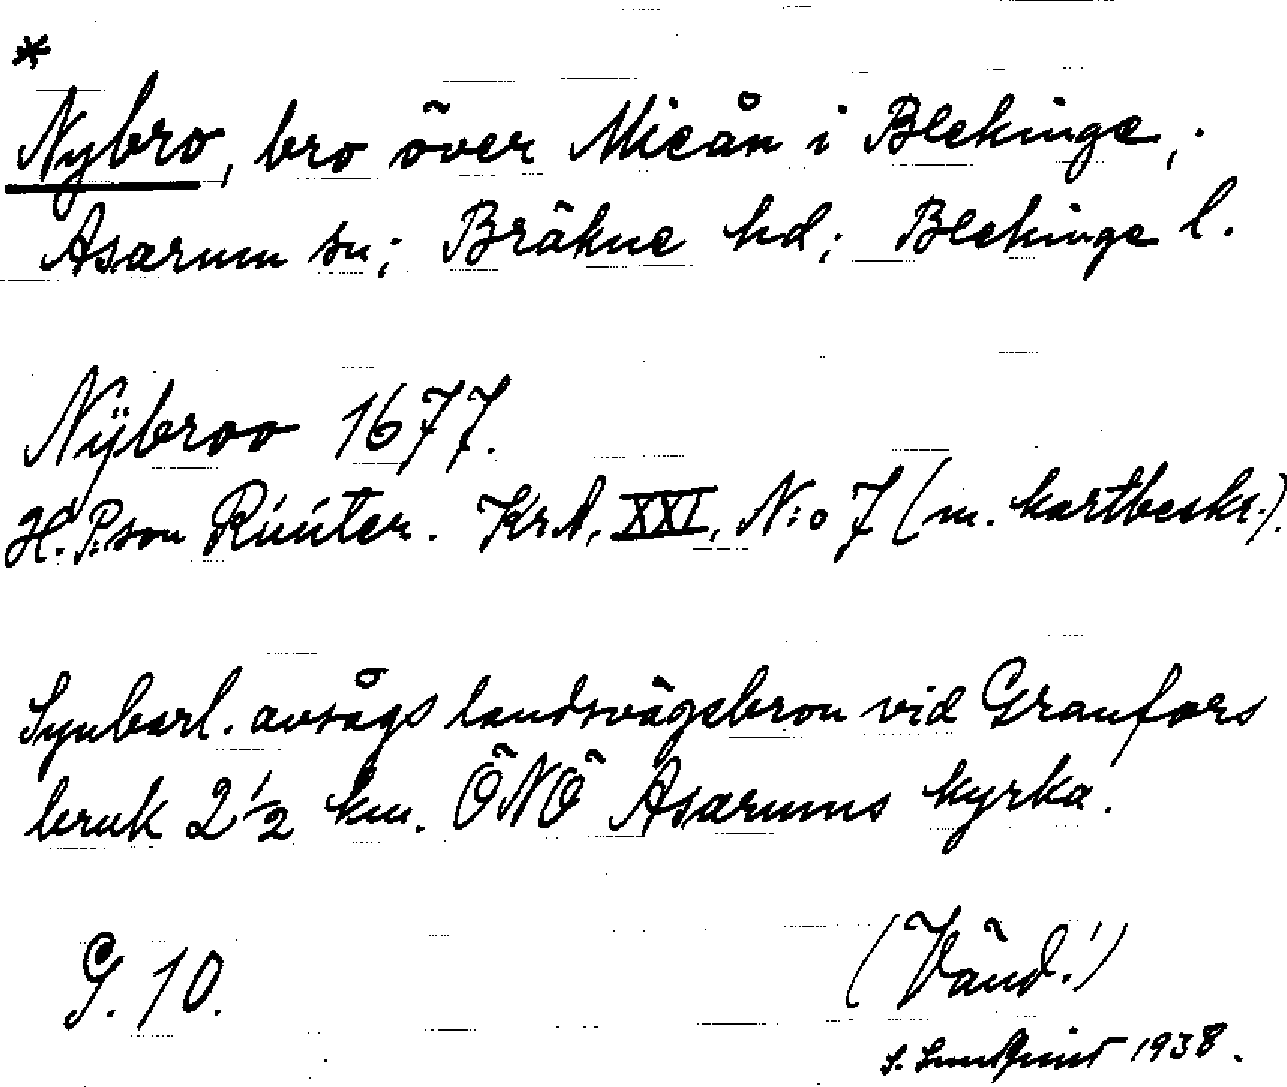 *
Nybro, bro över Mieån i Blekinge,.
Asarum sn; Bräkne hd; Blekinge l.
Nÿbroo 1677.
H. P:son Rúúter. KrA, XXI, N:o 7 (m. kartbeskr.).
Synbarl. avsågs landsvägsbron vid Granfors
bruk 2 1/2 km. ÖNÖ Asarums kyrka.
G. 10.
(Vänd!)
S. 1938.